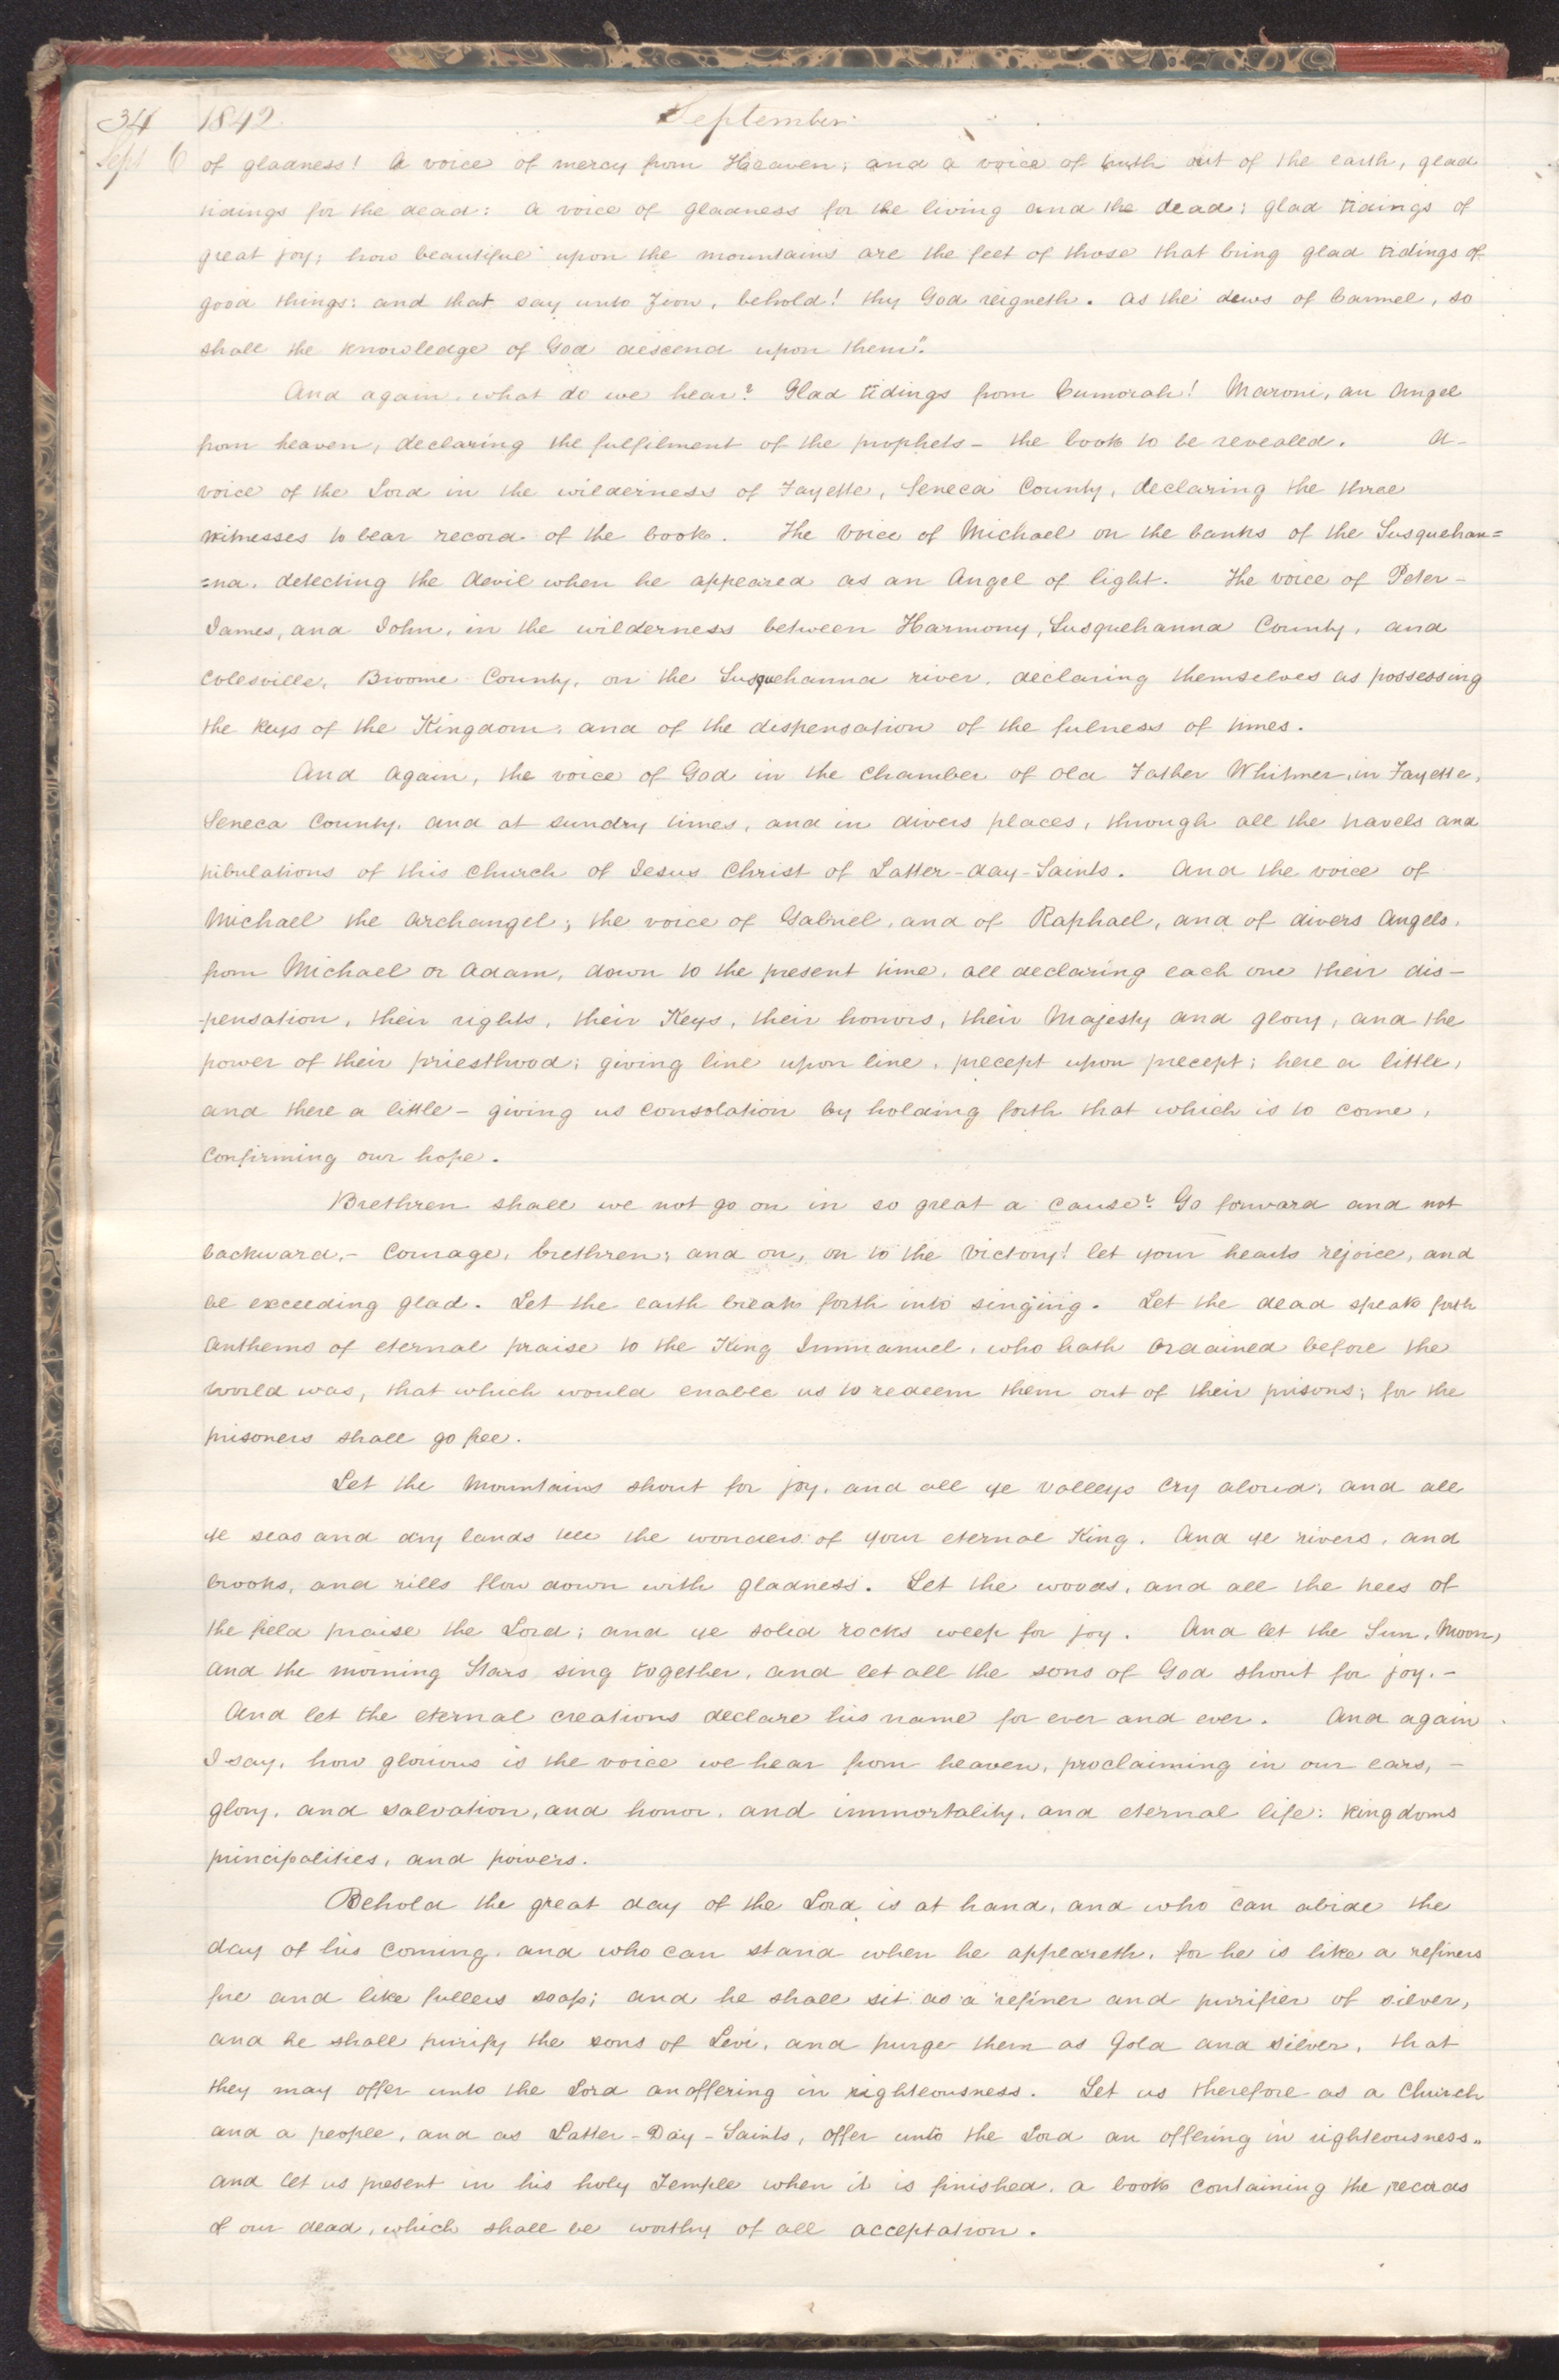 34 1842 September
Sept 6 of gladness! A voice of mercy from Heaven; and a voice of truth out of the earth, glad
tidings for the dead: a voice of gladness for the living and the dead; glad tidings of
great joy; how beautiful upon the mountains are the feet of those that bring glad tidings of
good things: and that say unto Zion, behold! thy God reigneth. As the dews of Carmel, so
shall the knowledge of God descend upon them".
And again, what do we hear? Glad tidings from Cumorah! Maroni, an Angel
from heaven, declaring the fulfilment of the prophets - the book to be revealed. A-
voice of the Lord in the wilderness of Fayette, Seneca County, declaring the three
witnesses to bear record of the book. The voice of Michael on the banks of the Susquehan=
=na, detecting the devil when he appeared as an Angel of light. The voice of Peter-
James, and John, in the wilderness between Harmony, Susquehanna County, and
Colesville, Broome County, on the Susquehanna river, declaring themselves as possessing
the keys of the Kingdom, and of the dispensation of the fulness of times.
And again, the voice of God in the chamber of old Father Whitmer, in Fayette,
Seneca County, and at sundry times, and in divers places, through all the travels and
tribulations of this Church of Jesus Christ of Latter-day-Saints. And the voice of
Michael the archangel; the voice of Gabriel, and of Raphael, and of divers Angels,
from Michael or Adam, down to the present time, all declaring each one their dis-
-pensation, their rights, their Keys, their honors, their Majesty and glory, and the
power of their priesthood; giving line upon line, precept upon precept; here a little,
and there a little - giving us consolation by holding forth that which is to come,
Confirming our hope.
Brethren shall we not go on in so great a cause? Go forward and not
backward,- Courage, brethren; and on, on to the victory! let your hearts rejoice, and
be exceeding glad. Let the earth break forth into singing. Let the dead speak forth
Anthems of eternal praise to the King Immanuel, who hath ordained before the
world was, that which would enable us to redeem them out of their prisons; for the
prisoners shall go free.
Let the Mountains shout for joy, and all ye valleys cry aloud; and all
ye seas and dry lands tell the wonders of your eternal King. And ye rivers, and
brooks, and rills flow down with gladness. Let the woods, and all the trees of
the field praise the Lord; and ye solid rocks weep for joy. And let the Sun, Moon,
and the morning Stars sing together, and let all the sons of God shout for joy.-
And let the eternal creations declare his name for ever and ever. And again
I say, how glorious is the voice we hear from heaven, proclaiming in our ears,-
glory, and salvation, and honor, and immortality, and eternal life: Kingdoms
principalities, and powers.
Behold the great day of the Lord is at hand, and who can abide the
day of his coming, and who can stand when he appeareth, for he is like a refiners
fire and like fullers soap; and he shall sit as a refiner and purifier of silver,
and he shall purify the sons of Levi, and purge them as Gold and silver, that
they may offer unto the Lord an offering in righteousness. Let us therefore as a Church
and a people, and as Latter-Day-Saints, offer unto the Lord an offering in righteousness"
and let us present in his holy Temple when it is finished, a book containing the records
of our dead, which shall be worthy of all acceptation.